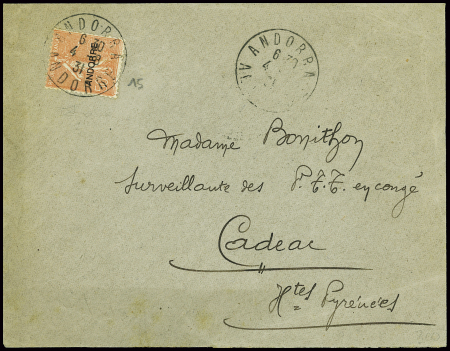 ANDORRA
6 30
4
31
ANDORRE
ANDORRE
15
ANDORRA
6 30
4
Madame Bonithon
Surveillante des P.T.T. en congé
Cadeac
Htes Pyrénées